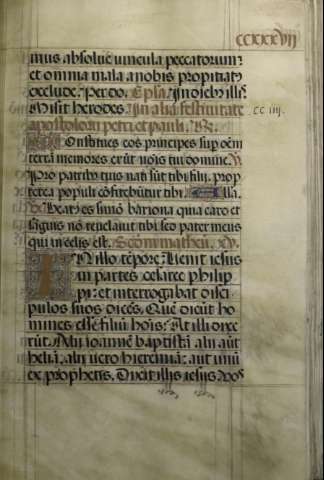 ccxxxvij
mus absolve vincula peccatorum
et omnia mala a nobis propitiatus
exclude. Per dn̄o. Ep̄la. In dieb᷒ ill.
Misit herodes. In alia festivitate
cc iiij.
apostolorum petri et pauli. R̄.
Constitues eos principes sup om̄em
terrā memores erūt noīs tui domine. V.
Pro patrib᷒ tuis nati sūt tibi filij. prop
terea populi cōfitebūtur tibi. Alla.
V. Beat᷒ es simō bariona quia caro et
sāguis nō revelavit tibi sed pater meus
qui in celis est. Scdm matheū. xvj.
In illo tēpore. Venit iesus
in partes cesaree philip
pi: et interrogabat disci
pulos suos dicēs. Quē dicūt ho
mines esse filiū hoīs: At illi dixe
rūt. Alij ioannē baptistā alij aūt
heliā. alij vero hieremiā: aut unū
ex prophetis. Dixit illis iesus. Vos